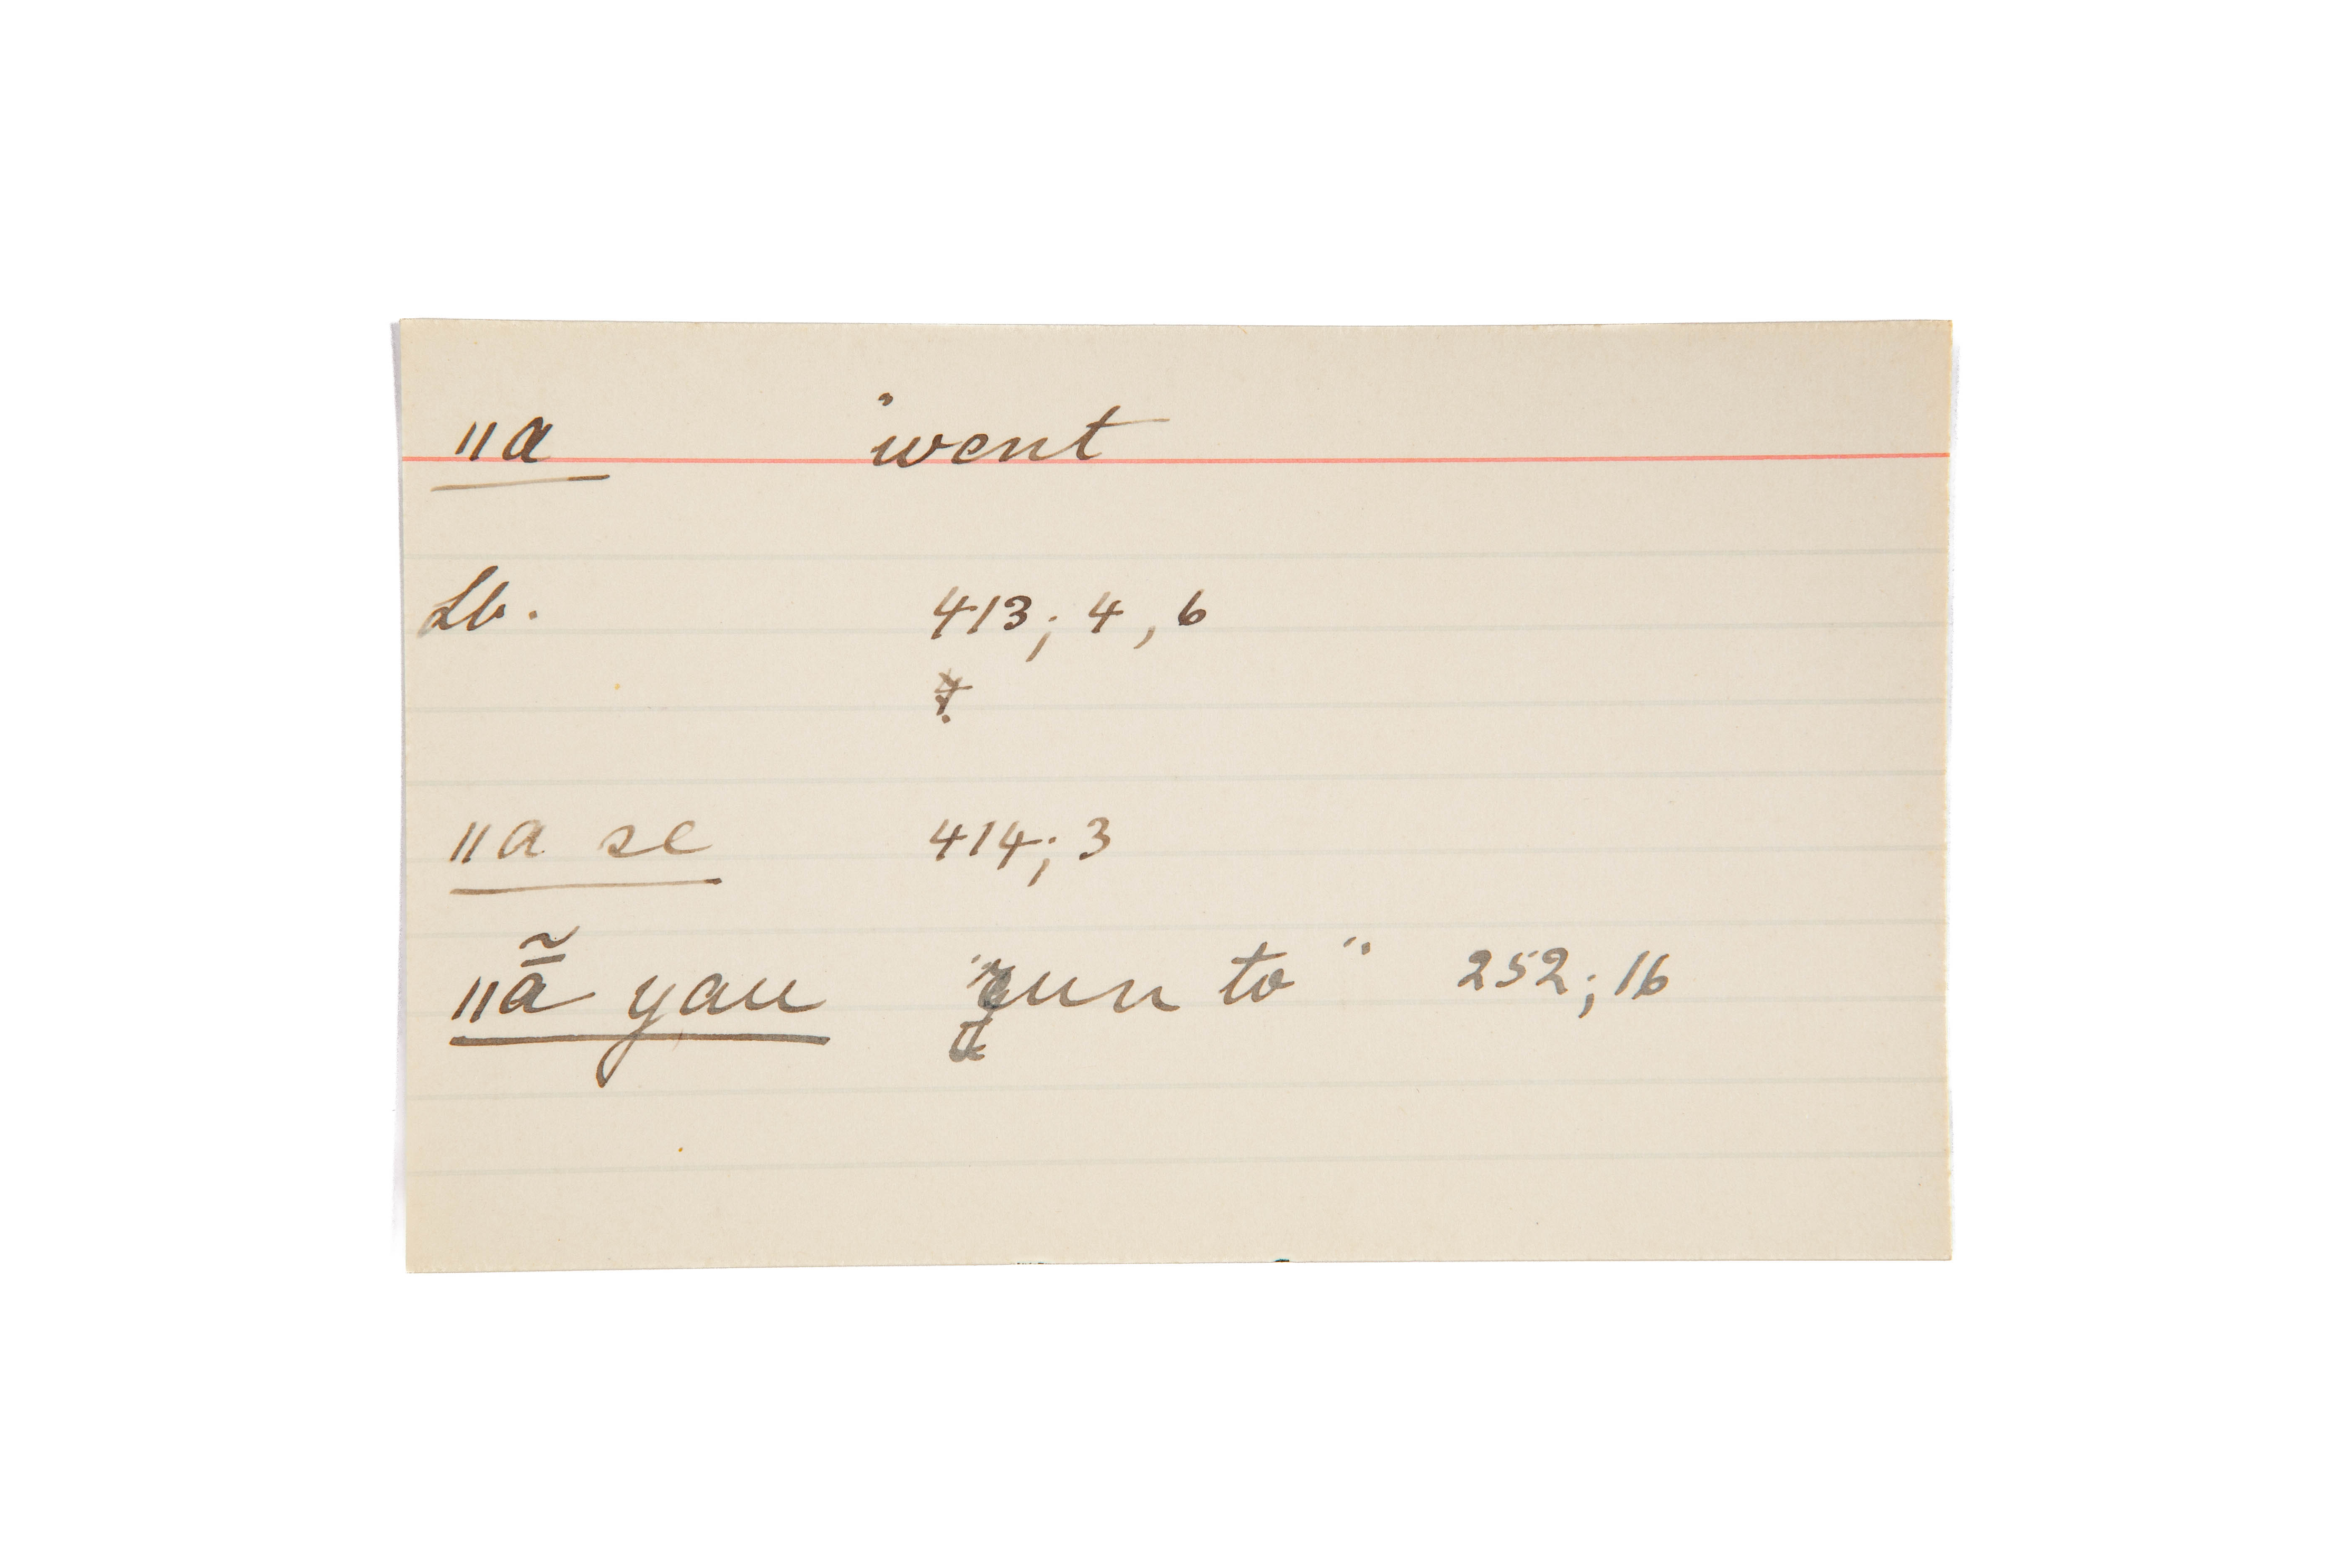 ǁa "went
Lb. 413; 4, 6
ǁa se 414; 3
ǁã̄ yau "run to" 252; 16